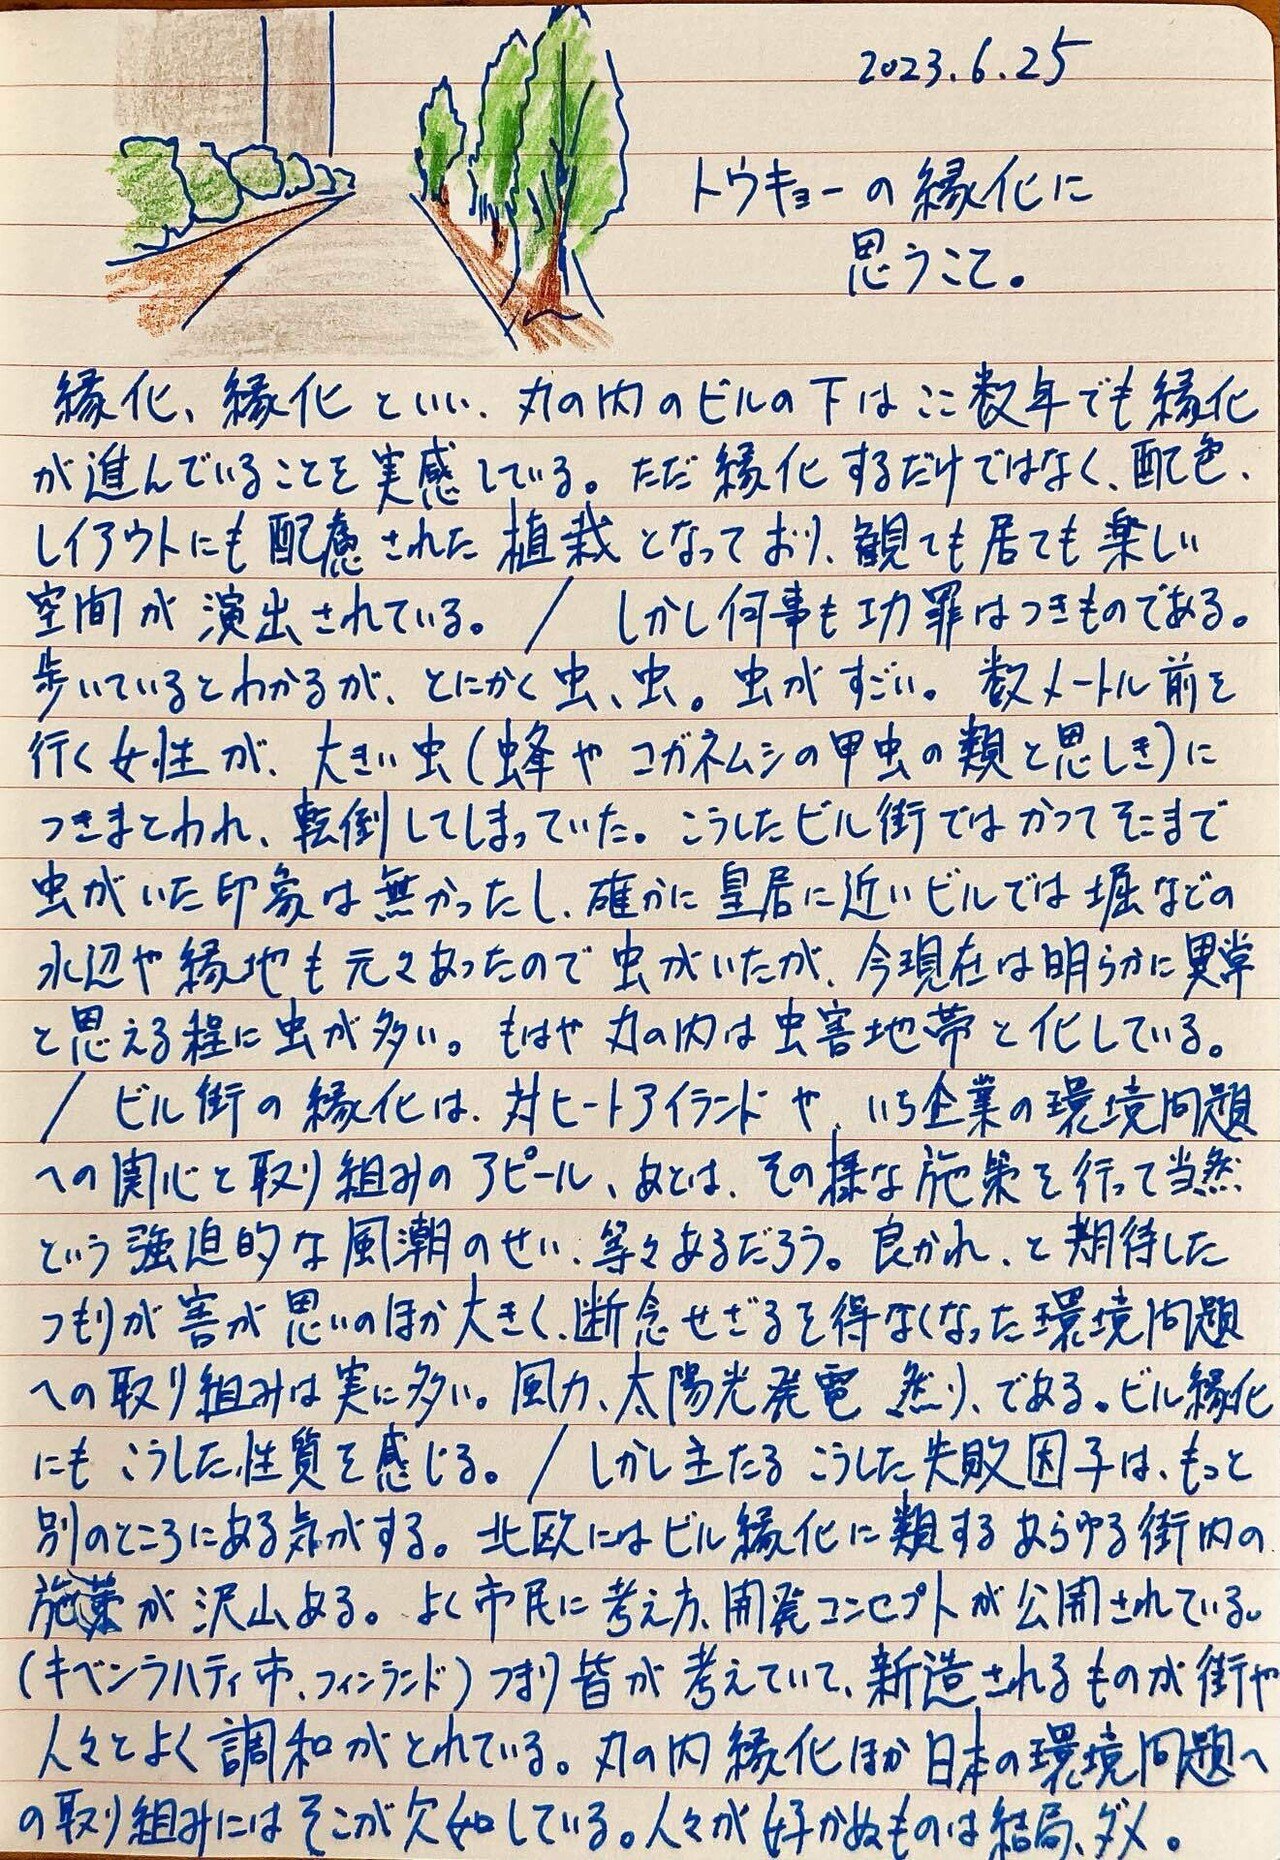 2023.6.25
トウキョーの緑化に
思うこと。
緑化、緑化といい、丸の内のビルの下はここ数年でも緑化
が進んでいることを実感している。ただ緑化するだけではなく、配色、
レイアウトにも配慮された植栽となっており、観ても居ても楽しい
空間が演出されている。/ しかし何事も功罪はつきものである。
歩いているとわかるが、とにかく虫、虫。虫がすごい。数メートル前を
行く女性が、大きい虫(蜂やコガネムシの甲虫の類と思しき)に
つきまとわれ、転倒してしまっていた。こうしたビル街ではかつてそこまで
虫がいた印象は無かったし、確かに皇居に近いビルでは堀などの
水辺や緑地も元々あったので虫がいたが、今現在は明らかに異常
と思える程に虫が多い。もはや丸の内は虫害地帯と化している。
/ ビル街の緑化は、対ヒートアイランドや、いち企業の環境問題
への関心と取り組みのアピール、あとは、その様な施策を行って当然
という強迫的な風潮のせい、等々あるだろう。良かれ、と期待した
つもりが害が思いのほか大きく、断念せざるを得なくなった環境問題
への取り組みは実に多い。風力、太陽光発電 然り、である。ビル緑化
にもこうした性質を感じる。/ しかし主たるこうした失敗因子は、もっと
別のところにある気がする。北欧にはビル緑化に類するあらゆる街内の
施策が沢山ある。よく市民に考え方、開発コンセプトが公開されている。
(キベンラハティ市、フィンランド)つまり皆が考えていて、新造されるものが街や
人々とよく調和がとれている。丸の内緑化ほか日本の環境問題へ
の取り組みにはそこが欠如している。人々が好かぬものは結局、ダメ。